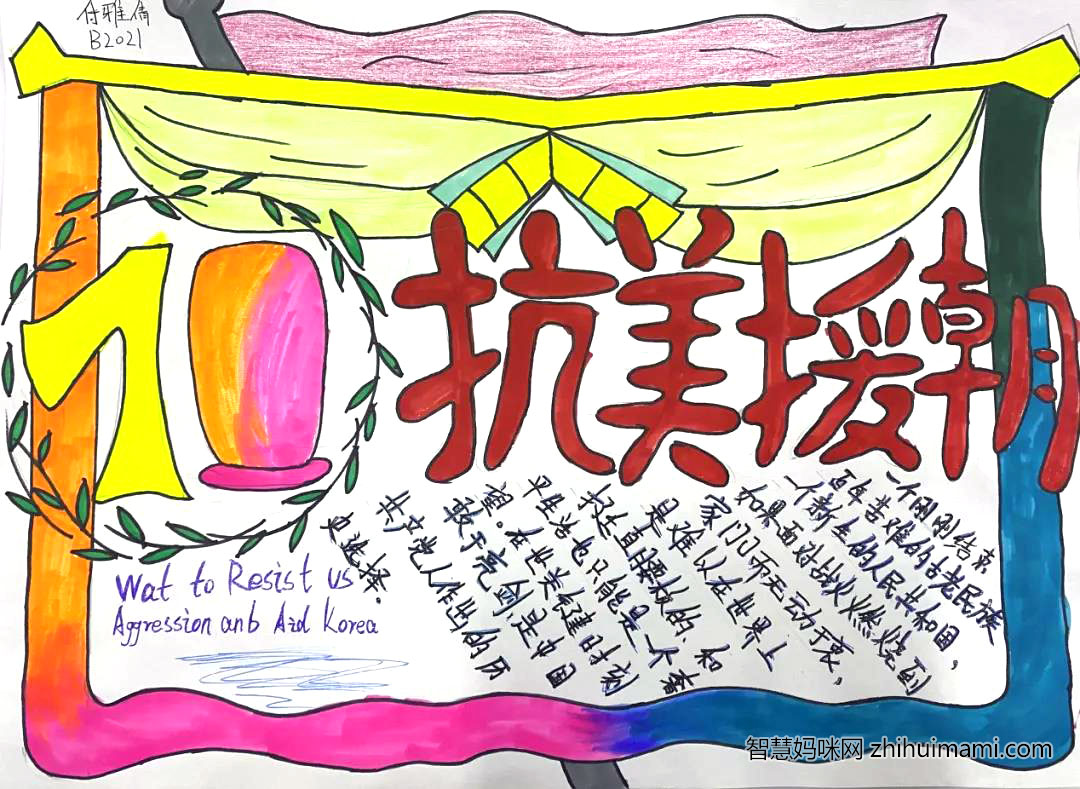 付雅倩
B2021
70
抗美援朝
一个刚刚结束
百年苦难的古老民族
一个新生的人民共和国，
如果面对战火燃烧到
家门口而无动于衷，
是难以在世界上
挺直腰板的，和
平生活也只能是一个奢
望。在 关键时刻
敢于亮剑是中国
共产党人作出的历
史选择.
Wat to Resist us
Aggression anb Azd Korea
智慧妈咪网 zhihuimami.com